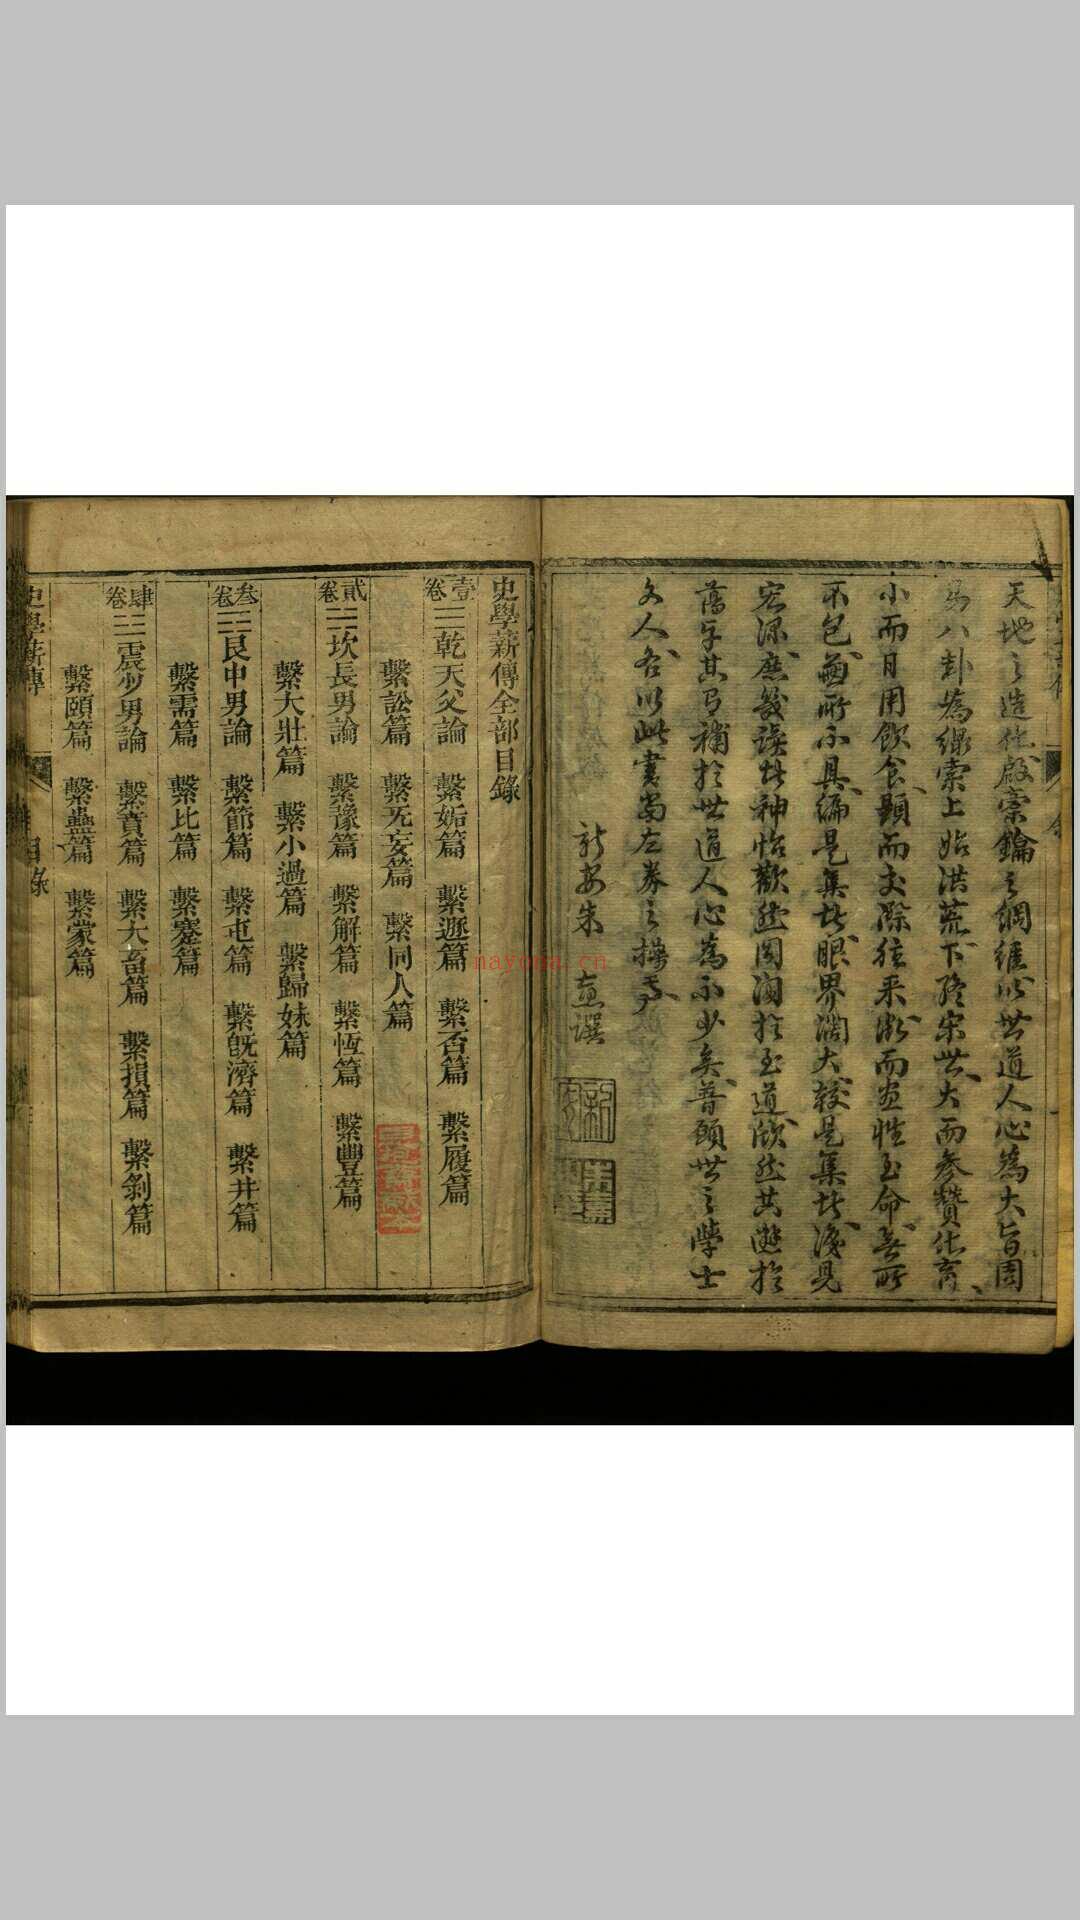 天地之造化啟橐鑰之綱維以世道人心為大旨因
易八卦為線索上始洪荒下終宋世大而參贊化育
小而日用飲食顯而交際往來微而盡性至命無所
不包蘊所不具編是集者眼界闊大較是集者淺見
宏深庶幾讀者神怡歡然因淘於至道欣然共遊於
舊學其有補於世道人心為不少矣普願世之學士
文人各以此書為左券之操焉
新安朱 撰
史學薪傳全部目錄
壹卷 ☰乾天父論 繫姤篇 繫遯篇 繫否篇 繫履篇
繫訟篇 繫无妄篇 繫同人篇
貳卷 坎長男論 繫豫篇 繫解篇 繫恆篇 繫豐篇
繫大壯篇 繫小過篇 繫歸妹篇
叁卷 艮中男論 繫節篇 繫屯篇 繫既濟篇 繫井篇
繫需篇 繫比篇 繫蹇篇
肆卷 震少男論 繫賁篇 繫大畜篇 繫損篇 繫剝篇
繫頤篇 繫蠱篇 繫蒙篇
史學薪傳 目錄
nayona.cn